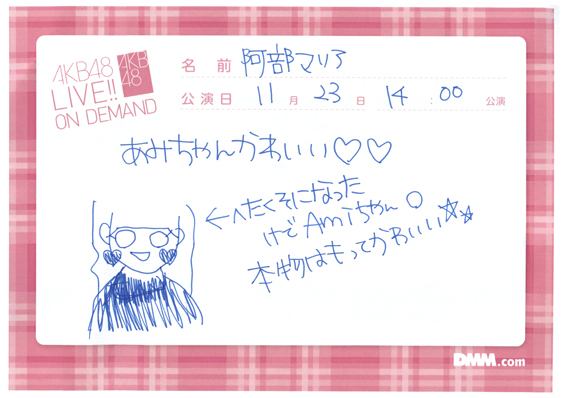 AKB48
LIVE!!
ON DEMAND
AKB
48
名前 阿部マリア
公演日 11月23日 14:00 公演
あみちゃんかわいい♡♡
←へたくそになった
けどAmiちゃん○
本物はもってかわいい☆☆
DMM.com